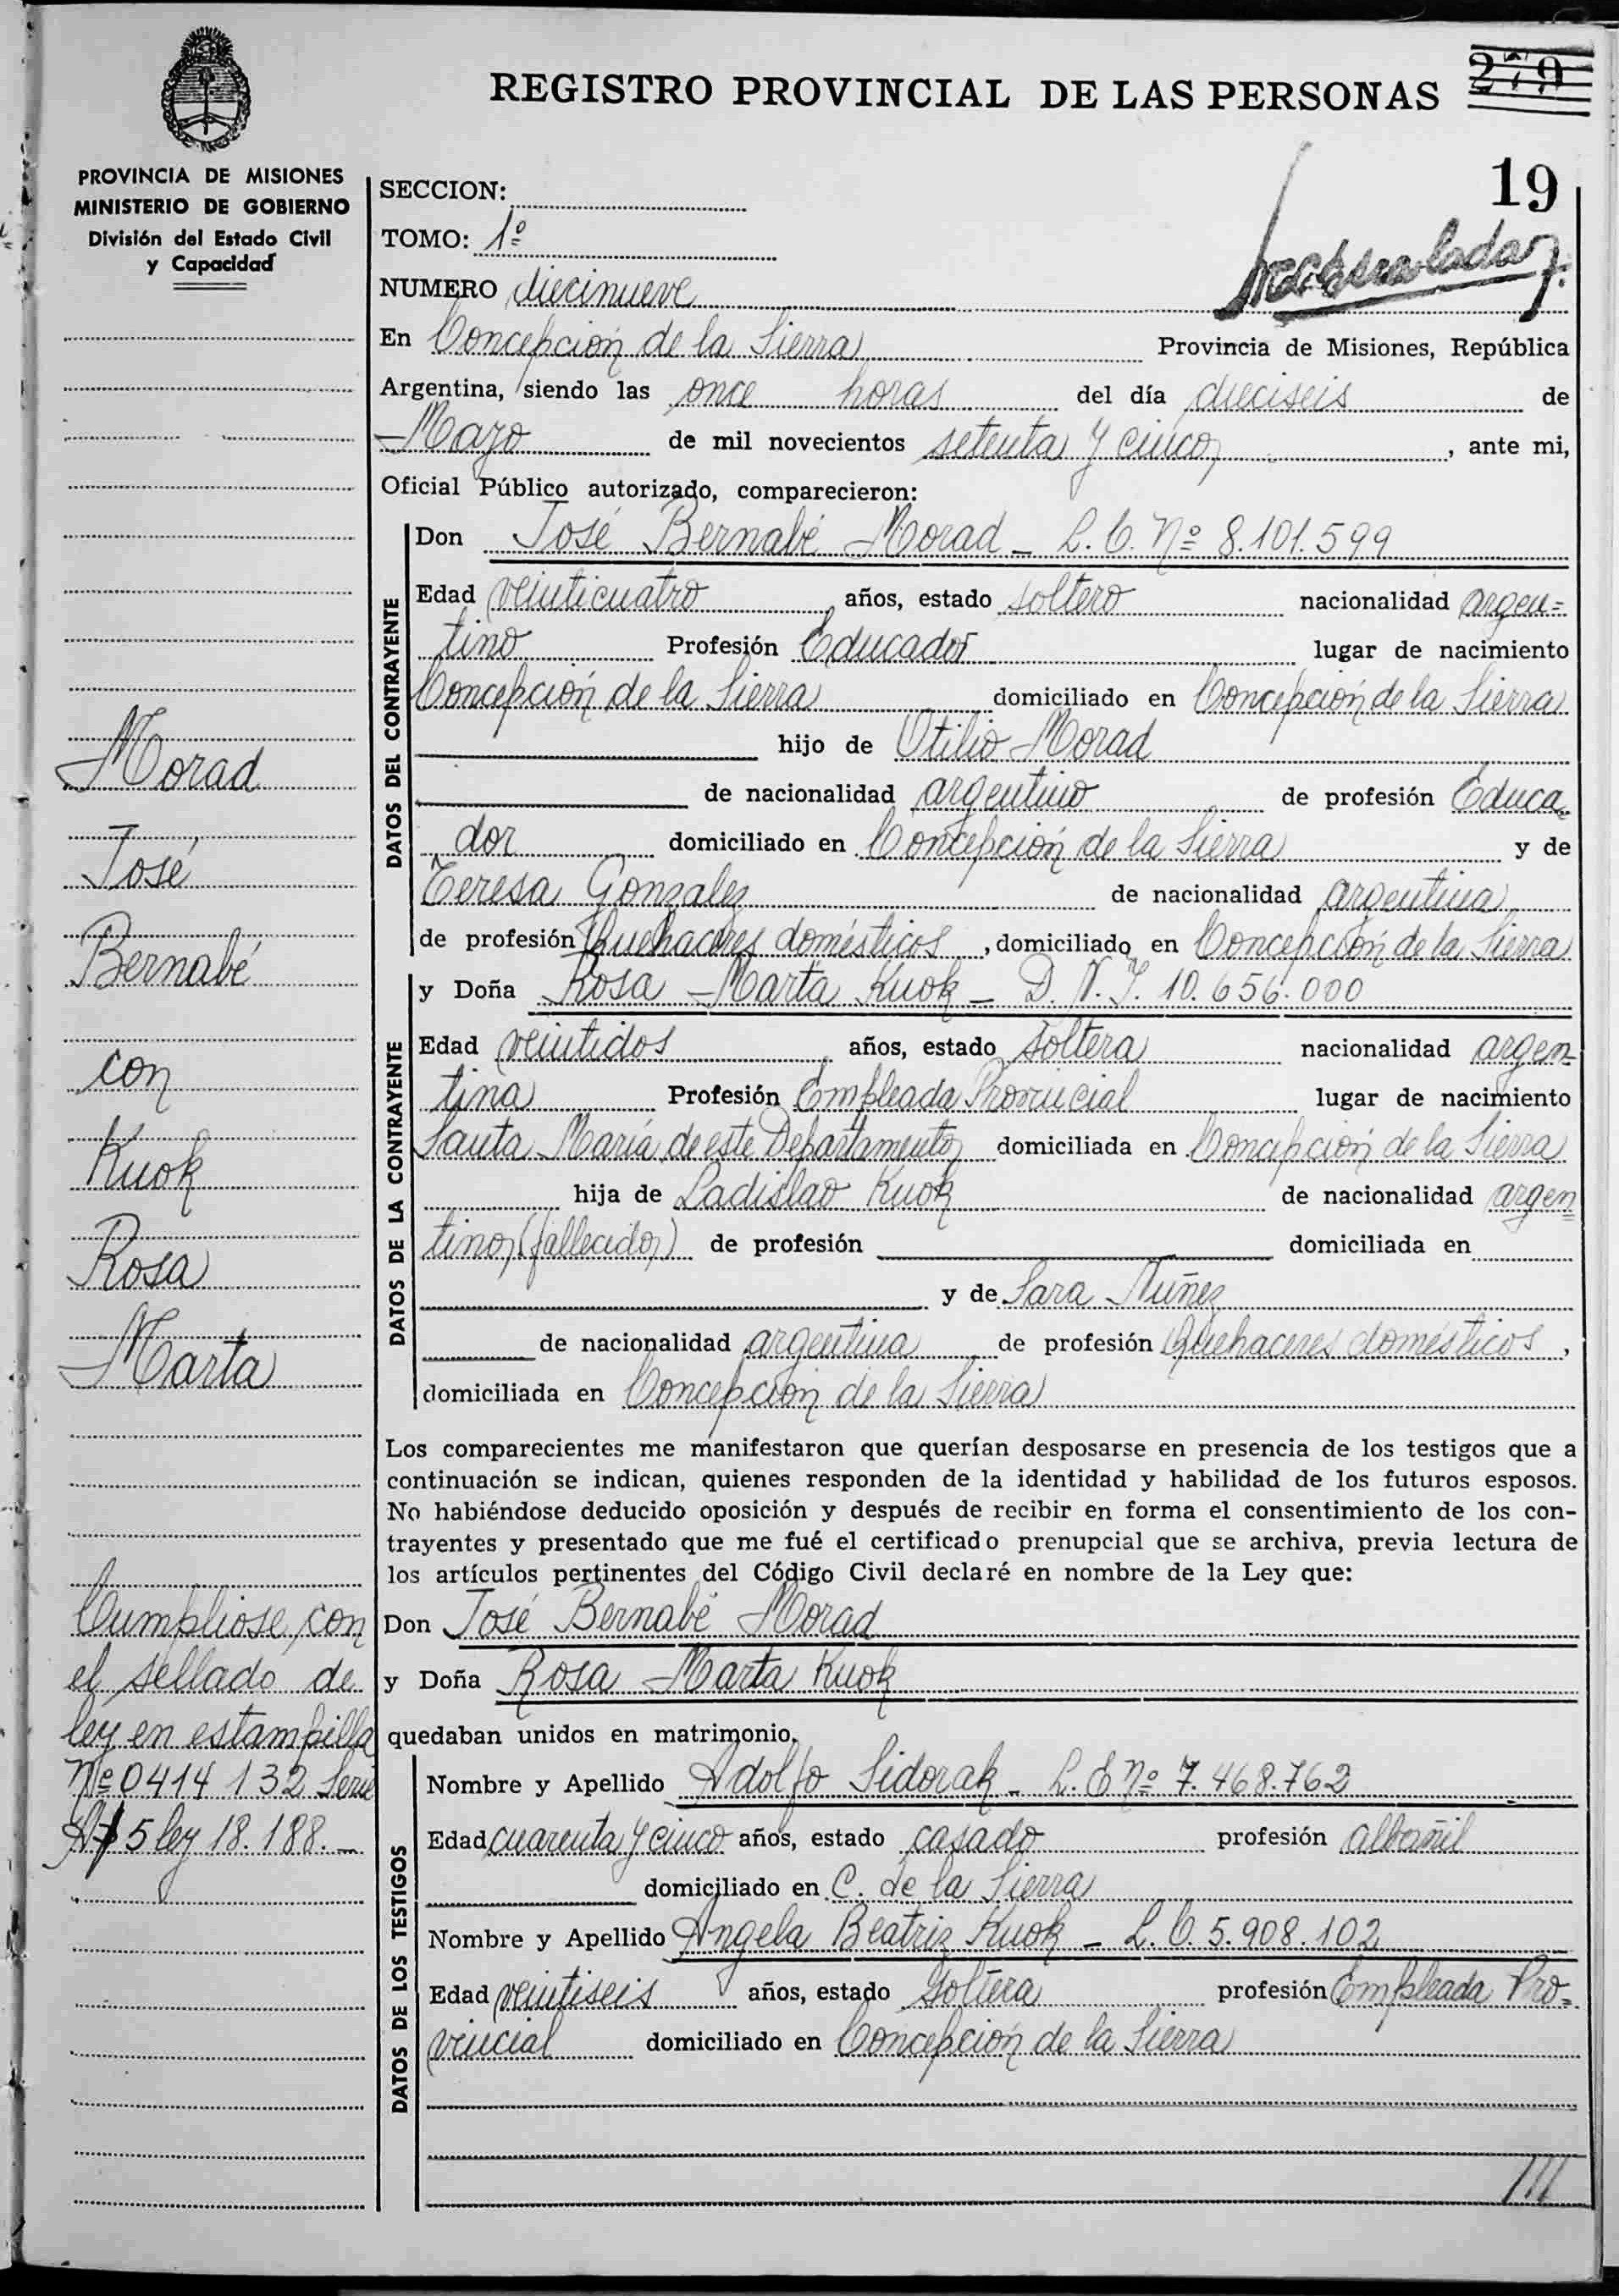 REGISTRO PROVINCIAL DE LAS PERSONAS
279
19
PROVINCIA DE MISIONES
MINISTERIO DE GOBIERNO
División del Estado Civil
y Capacidad
SECCION:
TOMO: 1º
NUMERO diecinueve
En Concepción de la Sierra Provincia de Misiones, República
Argentina, siendo las once horas del día dieciseis de
Mayo de mil novecientos setenta y cinco, ante mi,
Oficial Público autorizado, comparecieron:
DATOS DEL CONTRAYENTE
Don José Bernabé Morad - L. E. Nº 8.101.599
Edad veinticuatro años, estado soltero nacionalidad argen=
tino Profesión Educador lugar de nacimiento
Concepción de la Sierra domiciliado en Concepción de la Sierra
hijo de Otilio Morad
de nacionalidad argentino de profesión Educa
dor domiciliado en Concepción de la Sierra y de
Teresa Gonzalez de nacionalidad argentina
de profesión Quehaceres domésticos, domiciliado en Concepción de la Sierra
DATOS DE LA CONTRAYENTE
y Doña Rosa Marta Kuok - D. N. I. 10.656.000
Edad veintidos años, estado soltera nacionalidad argen
tina Profesión Empleada Provincial lugar de nacimiento
Santa María de este Departamento domiciliada en Concepción de la Sierra
hija de Ladislao Kuok de nacionalidad argen
tino (fallecido) de profesión domiciliada en
y de Sara Nuñez
de nacionalidad argentina de profesión Quehaceres domésticos,
domiciliada en Concepción de la Sierra
Los comparecientes me manifestaron que querían desposarse en presencia de los testigos que a
continuación se indican, quienes responden de la identidad y habilidad de los futuros esposos.
No habiéndose deducido oposición y después de recibir en forma el consentimiento de los con-
trayentes y presentado que me fué el certificado prenupcial que se archiva, previa lectura de
los artículos pertinentes del Código Civil declaré en nombre de la Ley que:
Don José Bernabé Morad
y Doña Rosa Marta Kuok
quedaban unidos en matrimonio.
DATOS DE LOS TESTIGOS
Nombre y Apellido Adolfo Sidorak - L. E Nº 7.468.762
Edad cuarenta y cinco años, estado casado profesión albañil
domiciliado en C. de la Sierra
Nombre y Apellido Angela Beatriz Kuok - L. C. 5.908.102
Edad veintiseis años, estado Soltera profesión Empleada Pro=
vincial domiciliado en Concepción de la Sierra
///
Morad
José
Bernabé
con
Kuok
Rosa
Marta
Cumpliose con
el sellado de
ley en estampilla
Nº 0414132 Serie
5 ley 18.188.-